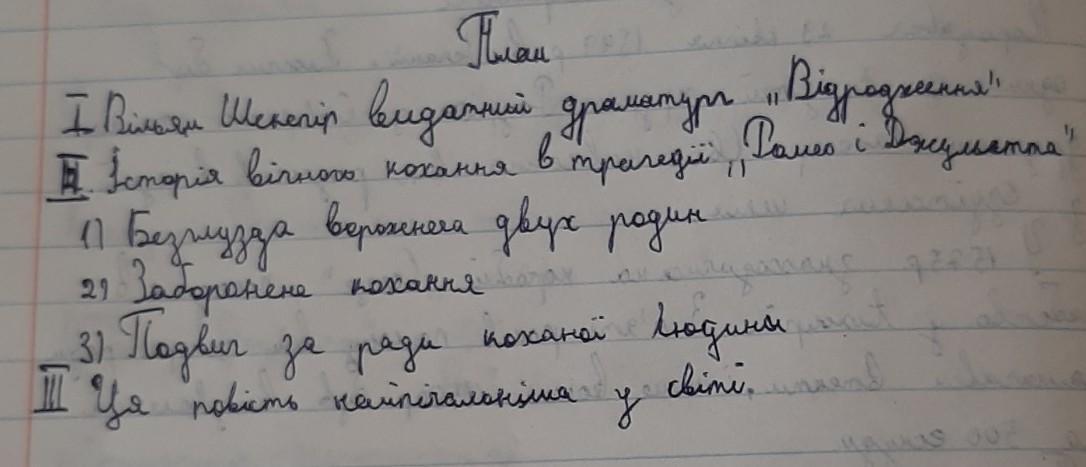 План
I Вільям Шекспір видатний драматург „Відродження"
II. Історія вічного кохання в трагедії „Ромео і Джульєтта"
1) Безглузда ворожнеча двух родин
2) Заборонене кохання
3) Подвиг за ради коханої людини
III Ця повість найпечальніша у світі.